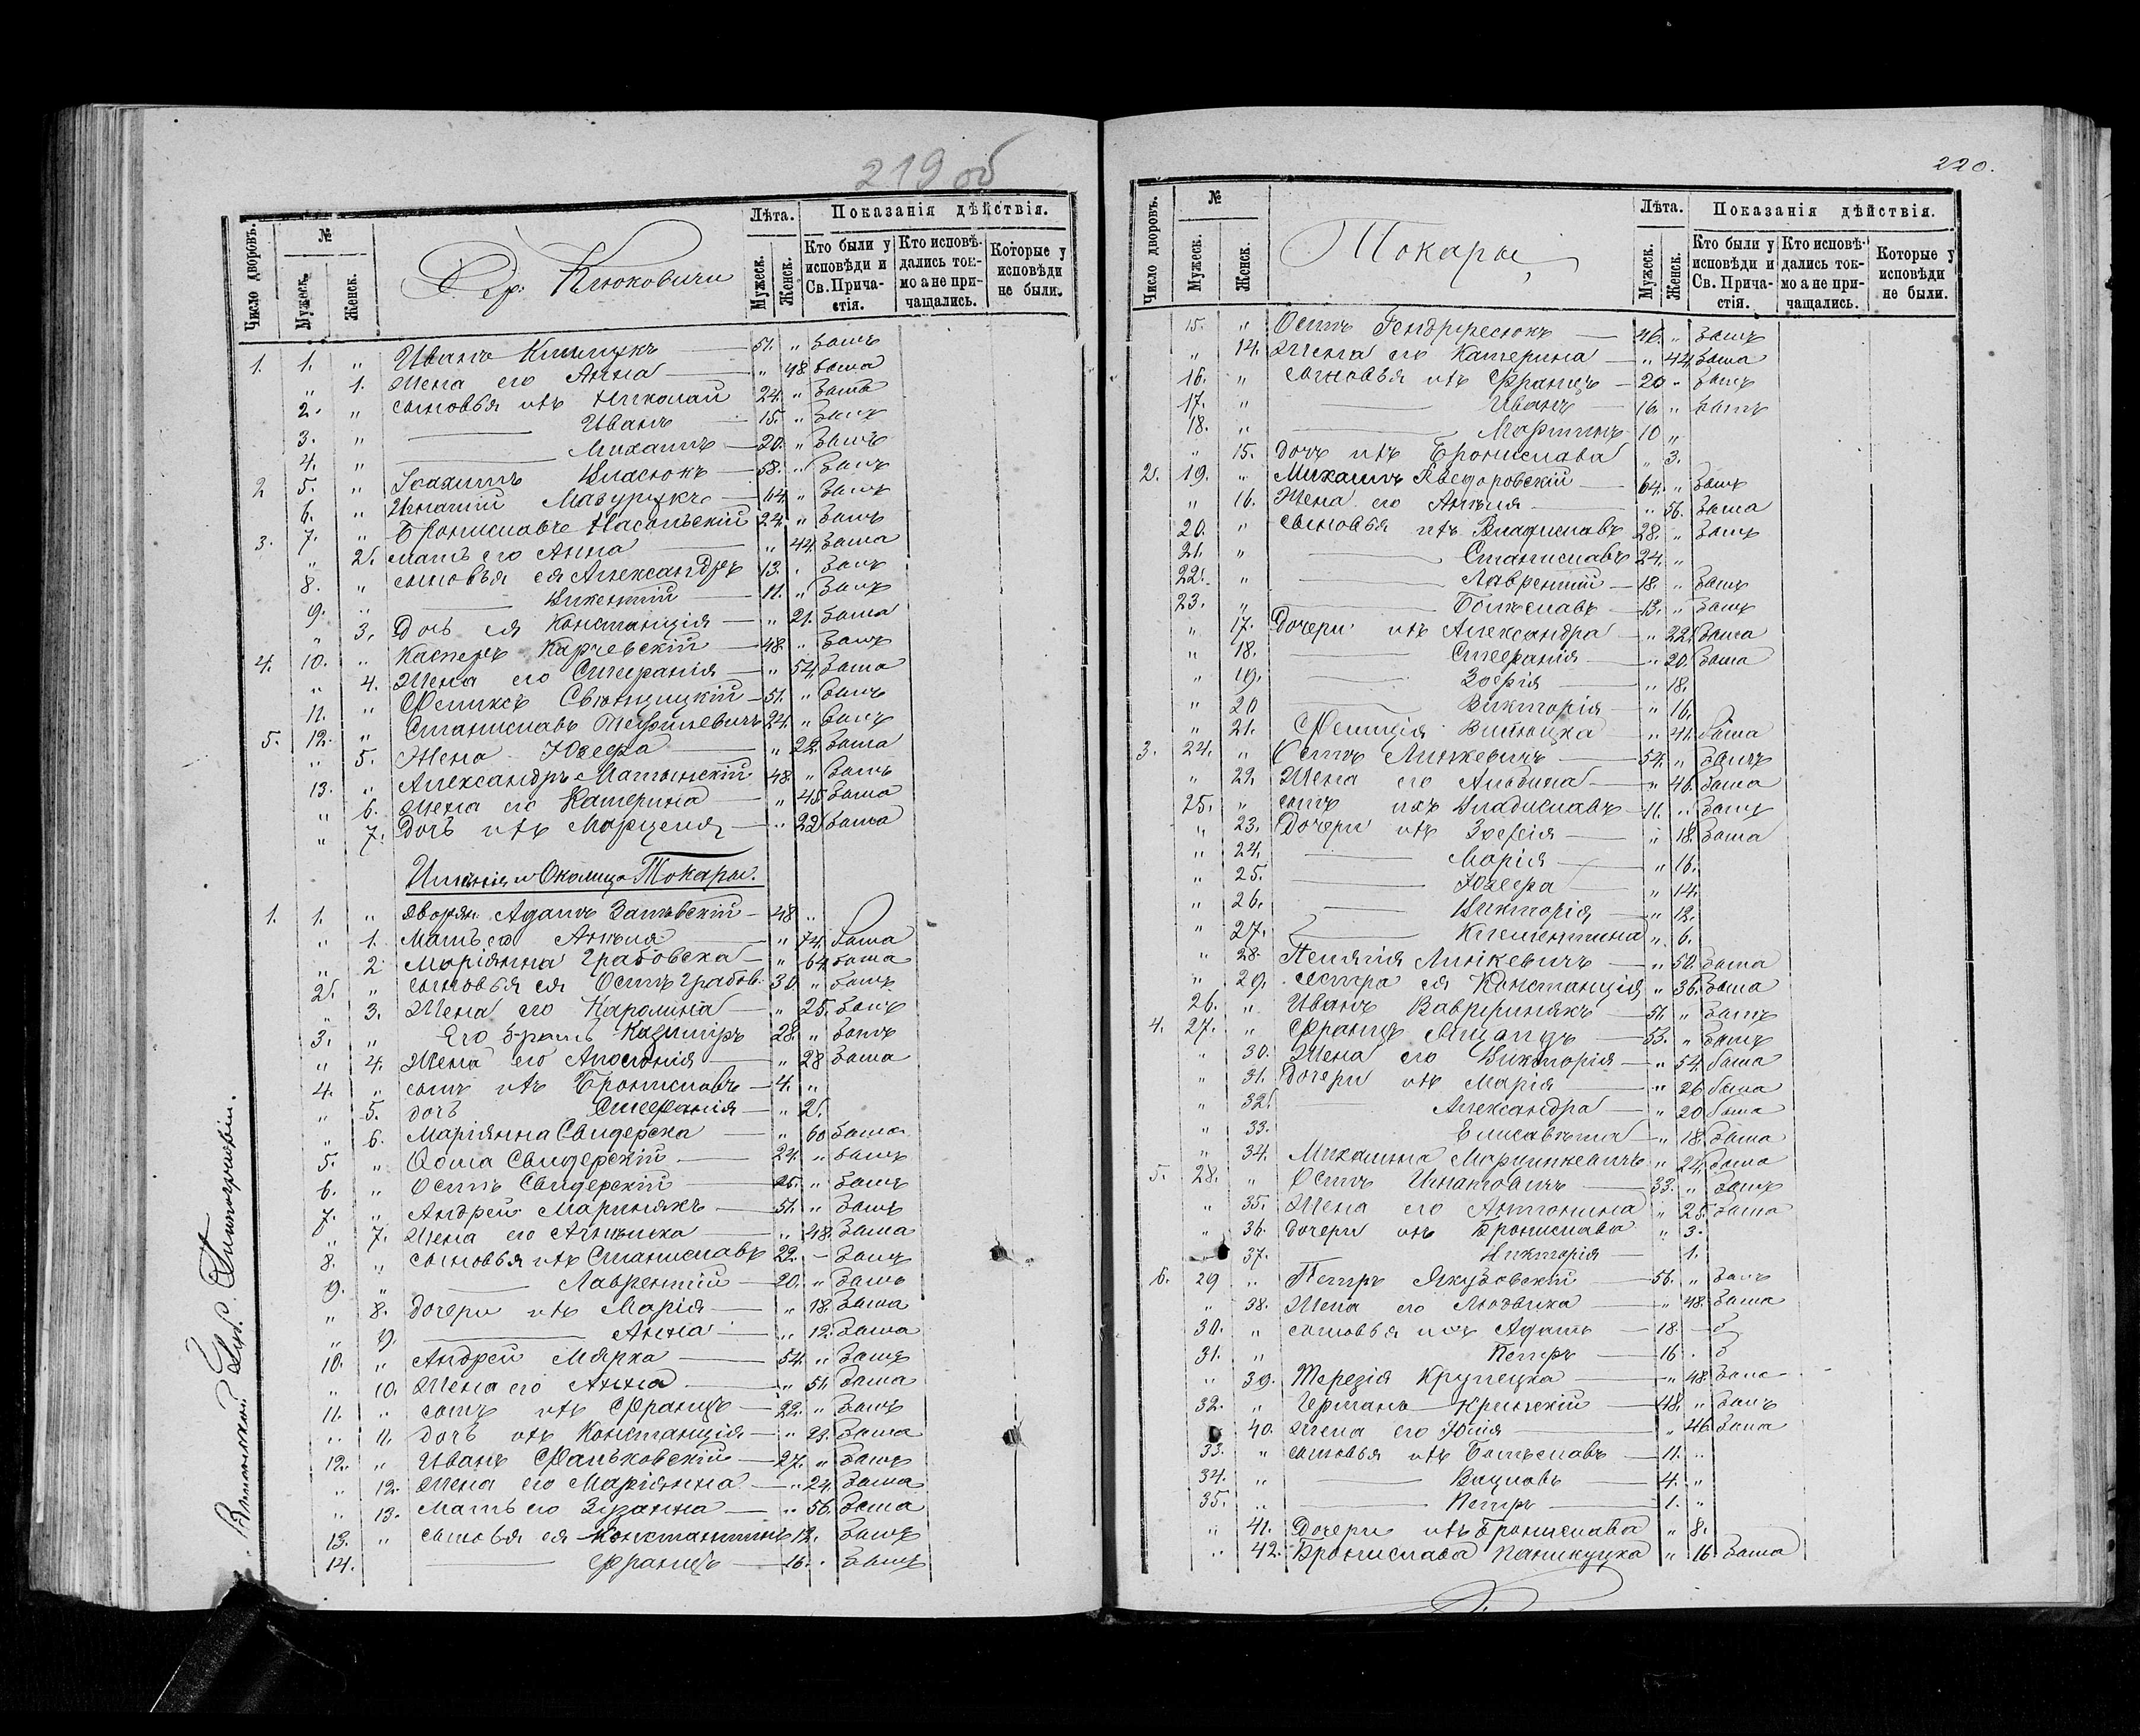 219 об
Число дворовъ. № Мужеск. Женск. Дер: Клюковичи Лѣта. Мужеск. Женск. Показанія дѣйствія. Кто были у исповѣди и Св. Причастія. Кто исповѣдались токмо а не причащались. Которые у исповѣди не были.
1. 1. " Иванъ 51. " былъ
" 1. Жена его Анна " 48 была
2. " сыновья ихъ Николай 24. " былъ
3. " Иванъ 15. " былъ
4. " Михаилъ 20. " былъ
2 5. " Іоахимъ Власюкъ 58. " былъ
6. " Игнатій Мазурукъ 64. " былъ
3. 7. " Брониславъ 24. " былъ
" 2. мать его Анна " 44. была
8. " сыновья ея Александръ 13. " былъ
9. " Викентій 11. " былъ
" 3. Дочь ея Констанція " 21. была
4. 10. " Касперъ Карчевскій 48. " былъ
" 4. Жена его Стефанія " 54. была
11. " Феликсъ 51. " былъ
5. 12. " Станиславъ 24. " былъ
" 5. Жена Юзефа " 22. была
13. " Александръ 48. " былъ
" 6. Жена его Катерина " 45 была
" 7. Дочь ихъ Марцеля " 22 была
Имѣнія и Околица Токары.
1. 1. " дворян. Адамъ 48 "
" 1. Мать его Анѣля " 74. была
" 2 Маріянна Грабовска " 64 была
2. " сыновья ея Осипъ Грабов. 30 " былъ
" 3. Жена его Каролина " 25. былъ
3. " Его братъ Казиміръ 28. " былъ
" 4. Жена его Аполонія " 28 была
4. " сынъ ихъ Брониславъ 4. "
" 5. дочь Стефанія " 2.
" 6. Маріянна Свидерска " 60 была
5. " Ѳома Свидерскій 24. " былъ
6. " Осипъ Свидерскій 25. " былъ
7. " Андрей Маринякъ 51. " былъ
" 7. Жена его " 48. была
8. " сыновья ихъ Станиславъ 22. - былъ
9. " Лаврентій 20. " былъ
" 8. дочери ихъ Марія " 18. была
" 9. Анна " 12. была
10. " Андрей Мярка 54. " былъ
" 10. Жена его Анна " 51. была
11. " сынъ ихъ Францъ 22. " былъ
" 11. дочь ихъ Констанція " 23. была
12. " Иванъ Фальковскій 27. " былъ
" 12. Жена его Маріянна " 24. была
" 13. Мать его Зузанна " 56. была
13. " сыновья ея Константинъ 12. былъ
14. Францъ 16. " былъ
220.
Число дворовъ. № Мужеск. Женск. Токары Лѣта. Мужеск. Женск. Показанія дѣйствія. Кто были у исповѣди и Св. Причастія. Кто исповѣдались токмо а не причащались. Которые у исповѣди не были.
15. " Осипъ 46. " былъ
" 14. Жена его Катерина " 44. была
16. " сыновья ихъ Францъ 20 " былъ
17. " Иванъ 16. " былъ
18. " Мартинъ 10 "
" 15. дочь ихъ Бронислава " 3.
2. 19. " Михаилъ 64. " былъ
" 16. Жена его Анѣля " 56. была
20. " сыновья ихъ Владиславъ 28. " былъ
21. " Станиславъ 24. "
22. " Лаврентій 18. " былъ
23. " Болеславъ 13. " былъ
" 17. Дочери ихъ Александра " 22. была
" 18. Стефанія " 20. была
" 19. Зофія " 18.
" 20 Викторія " 16.
" 21. Фелиція " 41. была
3. 24. " Осипъ Линкевичъ 54. " былъ
" 22. Жена его Альбина " 46. была
25. " сынъ ихъ Владиславъ 11. " былъ
" 23. Дочери ихъ Зофія " 18. была
" 24. Марія " 16.
" 25. Юзефа " 14.
" 26. Викторія " 12.
" 27. Клементина " 6.
" 28. Пелягія Линкевичъ " 50. была
" 29. сестра ея Констанція " 36. была
26. " Иванъ Вавринякъ 51. " былъ
4. 27. " Францъ 53. " былъ
" 30. Жена его Викторія " 54. была
" 31. Дочери ихъ Марія " 26 была
" 32. Александра " 20 была
" 33. Елисавета " 18. была
" 34. Михалина Марцинкевичъ " 24. была
5. 28. " Осипъ Игнатовичъ 33. " былъ
" 35. Жена его Антонина " 25. была
" 36. дочери ихъ Бронислава " 3.
" 37. Викторія 1.
6. 29 " Петръ Якубовскій 56. " былъ
" 38. Жена его Людвика " 48. была
30. " сыновья ихъ Адамъ 18. - б
31. " Петръ 16 . б
" 39. Терезія Крупецка " 48. была
32. " Германъ Крынскій 48. " былъ
40. Жена его Юлія " 46 была
33. " сыновья ихъ Болѣславъ 11. "
34. " Вацловъ 4. "
35. " Петръ 1. "
" 41. Дочери ихъ Бронислава " 8.
" 42. Бронислава " 16. была
Виленской Губ. Типографіи.